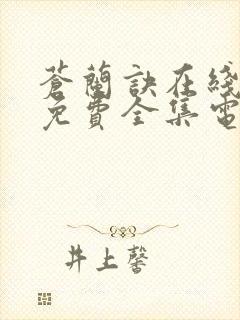 蒼蘭訣在綫
免費全集電
井上馨